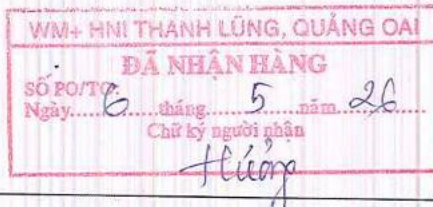 WM+ HNI THANH LŨNG, QUẢNG OAI
ĐÃ NHẬN HÀNG
SỐ PO/TO:
Ngày......6......tháng......5......năm...26......
Chữ ký người nhận
Hường